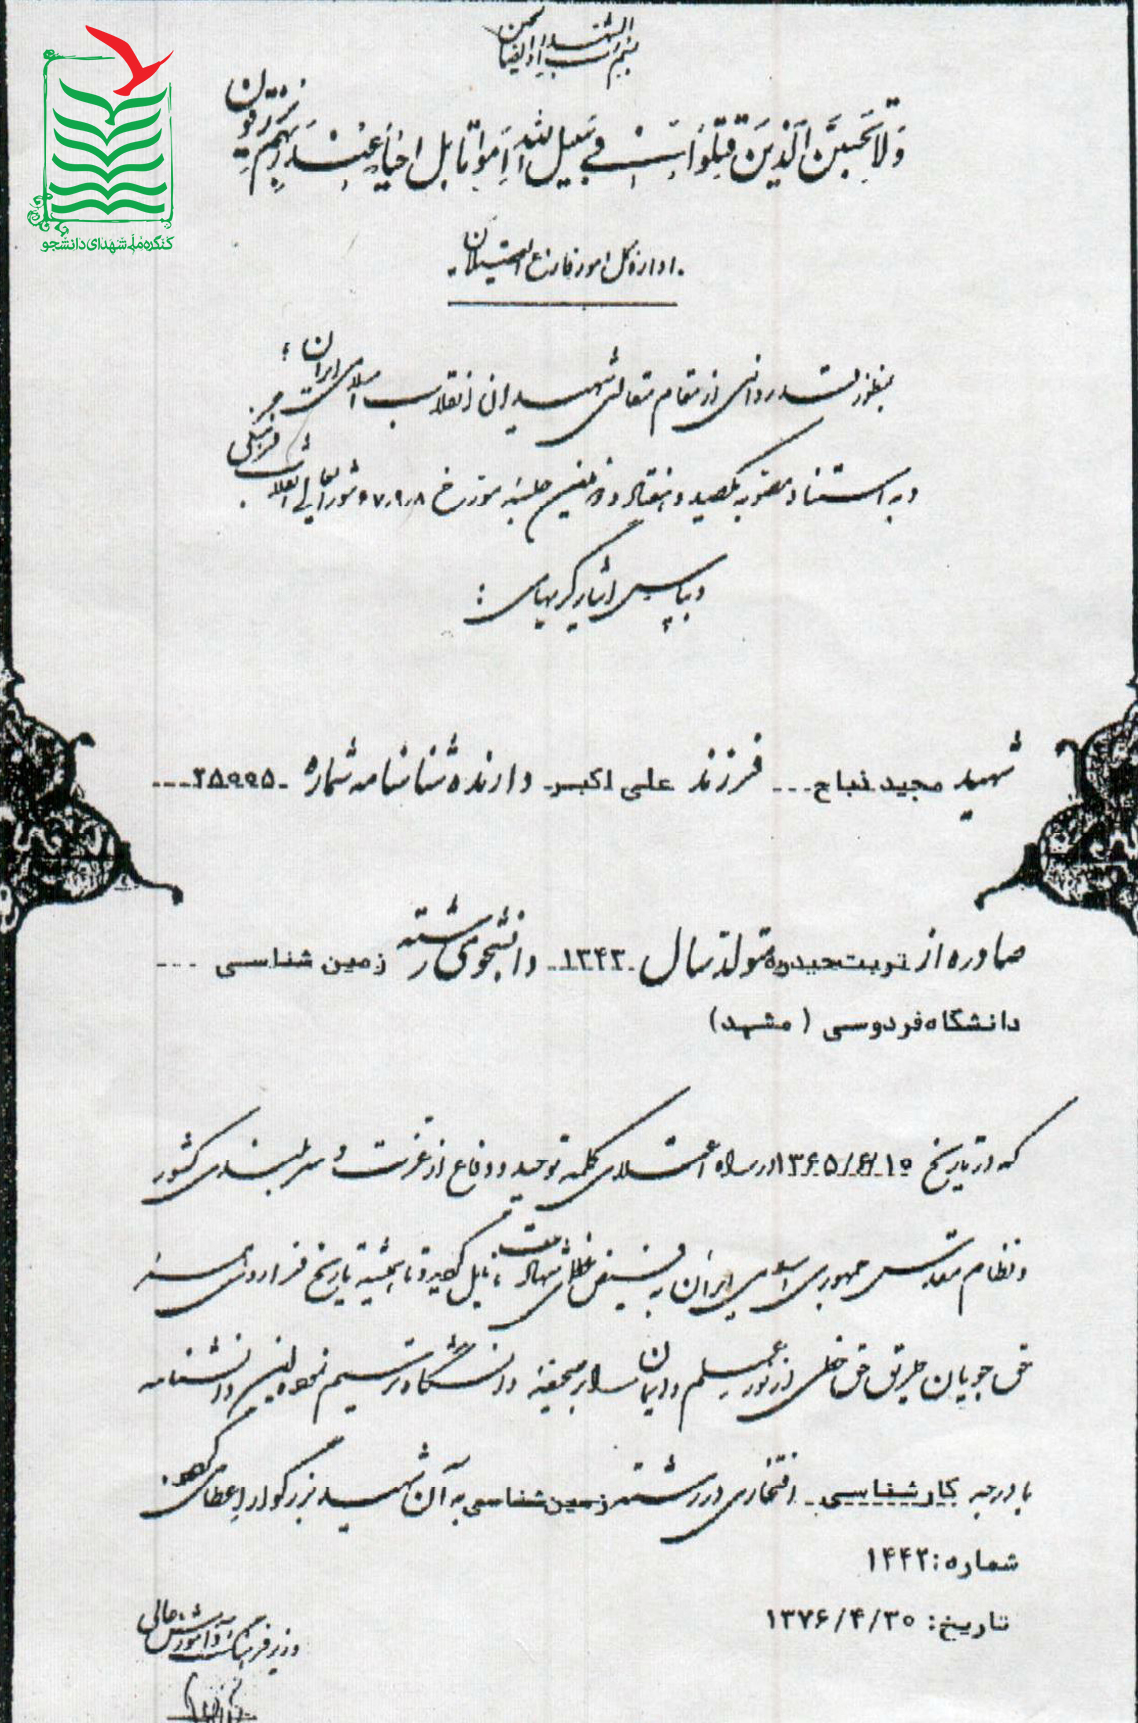 کنگره ملی شهدای دانشجو
بسم رب الشهداء والصدیقین
وَلا تَحسَبَنَّ الَّذینَ قُتِلوا فی سَبیلِ اللهِ اَمواتا بَل اَحیاءٌ عِندَ رَبِّهِم یُرزَقون
اداره کل امور فارغ التحصیلان
بمنظور قدردانی از مقام متعالی شهیدان انقلاب اسلامی ایران ؛
و به استناد مصوبه یکصد و هفتاد و جلسه مورخ ۶۷٫۹٫۸ شورای عالی انقلاب فرهنگی
و بپاس ایثارگریهای :
شهید مجید نباح فرزند علی اکبر دارنده شناسنامه شماره ۲۵۹۹۵
صادره از تربت حیدریه متولد سال ۱۳۴۳ دانشجوی رشته زمین شناسی
دانشگاه فردوسی ( مشهد)
که در تاریخ ۱۳۶۵/۶/۱۰ در راه اعتلای کلمه توحید و دفاع از عزت و سربلندی کشور
و نظام مقدس جمهوری اسلامی ایران به فیض عظمای شهادت نایل گردید و تا همیشه تاریخ فرا روی
حق جویان طریق حق خطی از نور علم و ایمان را بر صحیفه دانشگاه ترسیم نمود این دانشنامه
با درجه کارشناسی افتخاری در رشته زمین شناسی به آن شهید بزرگوار اعطا می گردد.
شماره: ۱۴۴۲
تاریخ: ۱۳۷۶/۴/۳۰
وزیر فرهنگ و آموزش عالی